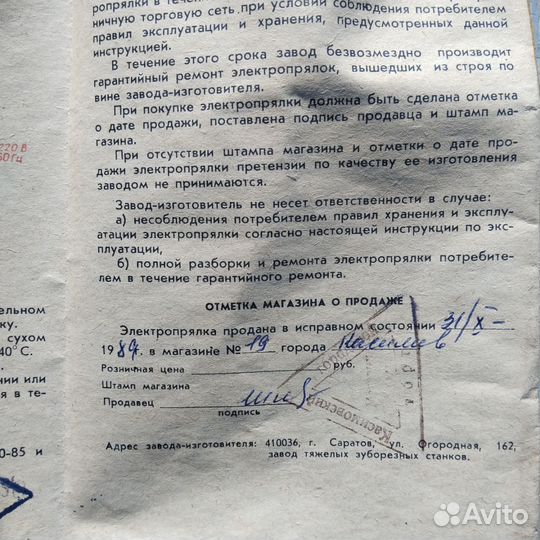 ропрялки в течен
ничную торговую сеть при условии соблюдения потребителем
правил эксплуатации и хранения, предусмотренных данной
инструкцией.
В течение этого срока завод безвозмездно производит
гарантийный ремонт электропрялок, вышедших из строя по
вине завода-изготовителя.
При покупке электропрялки должна быть сделана отметка
о дате продажи, поставлена подпись продавца и штамп ма-
газина.
При отсутствии штампа магазина и отметки о дате про-
дажи электропрялки претензии по качеству ее изготовления
заводом не принимаются.
Завод-изготовитель не несет ответственности в случае:
а) несоблюдения потребителем правил хранения и эксплу-
атации электропрялки согласно настоящей инструкции по экс-
плуатации,
б) полной разборки и ремонта электропрялки потребите-
лем в течение гарантийного ремонта.
ОТМЕТКА МАГАЗИНА О ПРОДАЖЕ
Электропрялка продана в исправном состоянии 31/X–
1989г. в магазине № 19 города Касимов
Розничная цена руб.
Штамп магазина
Продавец
подпись
Касимовский
Адрес завода-изготовителя: 410036, г. Саратов, ул. Огородная, 162,
завод тяжелых зуборезных станков.
220 В
50 Гц
ительном
ку.
сухом
40° С.
нии или
я в те-
0-85 и
Avito